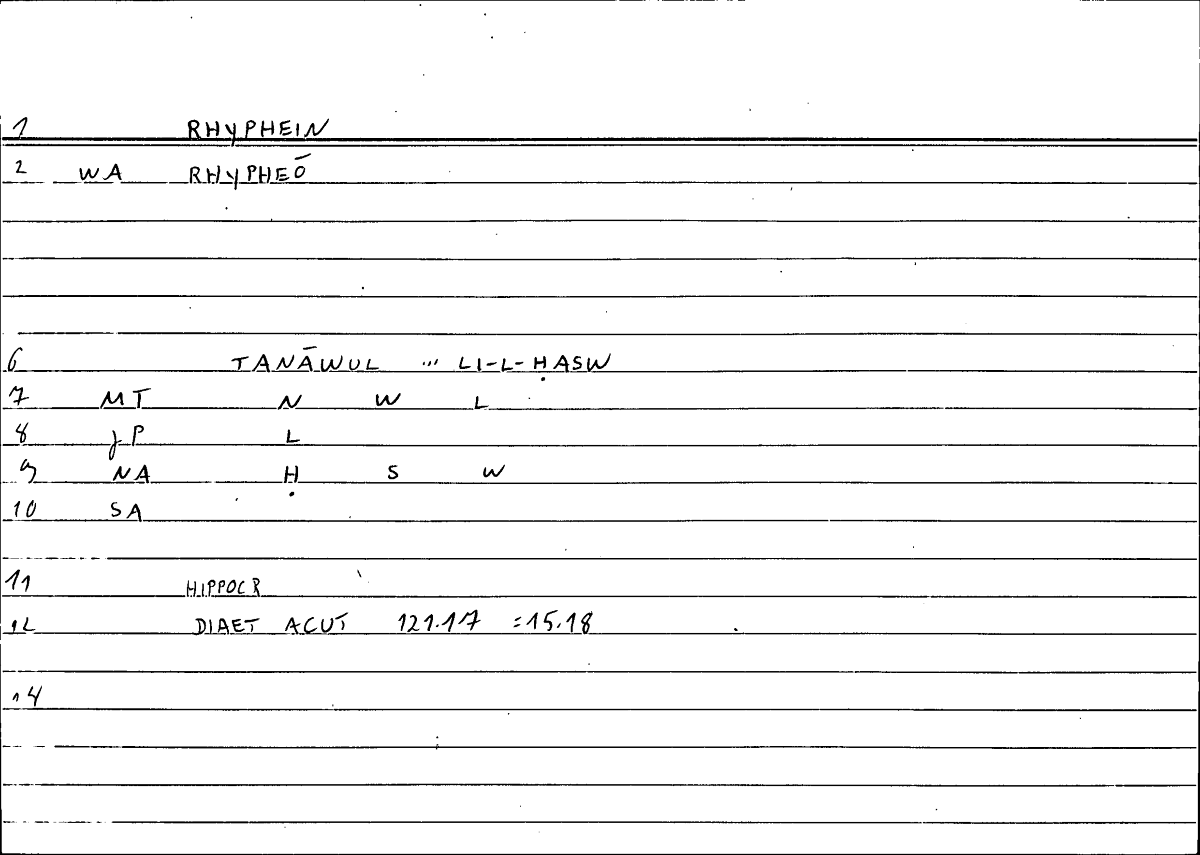 1 RHYPHEIN
2 WA RHYPHEŌ
6 TANĀWUL ... LI-L-ḤASW
7 MT N W L
8 JP L
9 NA Ḥ S W
10 SA
11 HIPPOCR
12 DIAET ACUT 121.17 =15.18
14